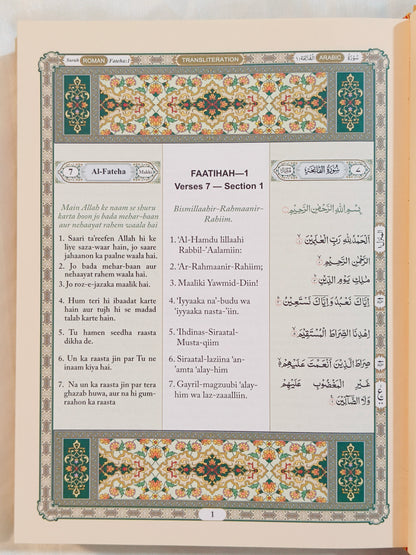 Surah ROMAN Fateha:1
TRANSLITERATION
اَلْفَاتِحَة ١ ARABIC سُوْرَةُ
7 Al-Fateha Makki
FAATIHAH—1
Verses 7 — Section 1
سُوْرَةُ الْفَاتِحَةِ
Main Allah ke naam se shuru
karta hoon jo bada mehar-baan
aur nehaayat rahem waala hai
1. Saari ta'reefen Allah hi ke
liye saza-waar hain, jo saare
jahaanon ka paalne waala hai.
2. Jo bada mehar-baan aur
nehaayat rahem waala hai.
3. Jo roz-e-jazaka maalik hai.
4. Hum teri hi ibaadat karte
hain aur tujh hi se madad
talab karte hain.
5. Tu hamen seedha raasta
dikha de.
6. Un ka raasta jin par Tu ne
inaam kiya hai.
7. Na un ka raasta jin par tera
ghazab huwa, aur na hi gum-
raahon ka raasta
Bismillaahir-Rahmaanir-
Rahiim.
1. 'Al-Hamdu lillaahi
Rabbil-'Aalamiin:
2. 'Ar-Rahmaanir-Rahiim;
3. Maaliki Yawmid-Diin!
4. 'Iyyaaka na'-budu wa
'iyyaaka nasta-'iin.
5. 'Ihdinas-Siraatal-
Musta-qiim
6. Siraatal-laziina 'an-
'amta 'alay-him
7. Gayril-magzuubi 'alay-
him wa laz-zaaalliin.
بِسْمِ اللهِ الرَّحْمٰنِ الرَّحِيْمِ
اَلْحَمْدُ لِلّٰهِ رَبِّ الْعٰلَمِيْنَ
الرَّحْمٰنِ الرَّحِيْمِ
مٰلِكِ يَوْمِ الدِّيْنِ
اِيَّاكَ نَعْبُدُ وَاِيَّاكَ نَسْتَعِيْنُ
اِهْدِنَا الصِّرَاطَ الْمُسْتَقِيْمَ
صِرَاطَ الَّذِيْنَ اَنْعَمْتَ عَلَيْهِمْ
غَيْرِ الْمَغْضُوْبِ عَلَيْهِمْ
وَلَا الضَّآلِّيْنَ
1